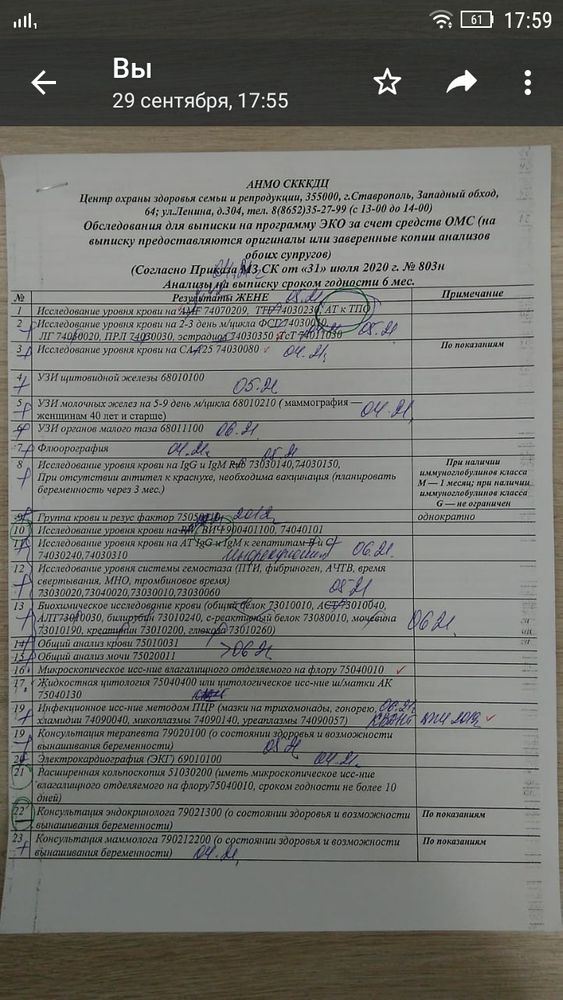 61 17:59
Вы
29 сентября, 17:55
АНМО СКККДЦ
Центр охраны здоровья семьи и репродукции, 355000, г.Ставрополь, Западный обход,
64; ул.Ленина, д.304, тел. 8(8652)35-27-99 (с 13-00 до 14-00)
Обследования для выписки на программу ЭКО за счет средств ОМС (на
выписку предоставляются оригиналы или заверенные копии анализов
обоих супругов)
(Согласно Приказа МЗ СК от «31» июля 2020 г. № 803н
Анализы на выписку сроком годности 6 мес.
№ Результаты ЖЕНЕ Примечание
1 Исследование уровня крови на 74070209, 74030230, АТ к ТПО
2 Исследование уровня крови на 2-3 день м/цикла
ЛГ 74030020, ПРЛ 74030030, эстрадиол 74030350 74011030 05.21
3 Исследование уровня крови на СА125 74030080 04.21 По показаниям
4 УЗИ щитовидной железы 68010100 05.21
5 УЗИ молочных желез на 5-9 день м/цикла 68010210 ( маммография —
женщинам 40 лет и старше) 04.21
6 УЗИ органов малого таза 68011100 06.21
7 Флюорография 04.21 05.21
8 Исследование уровня крови на IgG и IgM Rub 73030140,74030150,
При отсутствии антител к краснухе, необходима вакцинация (планировать
беременность через 3 мес.)
При наличии
иммуноглобулинов класса
М — 1 месяц; при наличии
иммуноглобулинов класса
G — не ограничен
9 Группа крови и резус фактор 2012 однократно
10 Исследование уровня крови на ВИЧ 900401100, 74040101
11 Исследование уровня крови на АТ IgG и IgM к гепатитам В и С
74030240,74030310 06.21
12 Исследование уровня системы гемостаза (ПТИ, фибриноген, АЧТВ, время
свертывания, МНО, тромбиновое время)
73030020,73040020,73030010,73030060 05.21
13 Биохимическое исследование крови (общий белок 73010010, АСТ 73010040,
АЛТ 73010030, билирубин 73010240, с-реактивный белок 73080010, мочевина
73010190, креатинин 73010200, глюкоза 73010260) 06.21
14 Общий анализ крови 75010031
15 Общий анализ мочи 75020011 >06.21
16 Микроскопическое исс-ние влагалищного отделяемого на флору 75040010
17 Жидкостная цитология 75040400 или цитологическое исс-ние ш/матки АК
75040130
19 Инфекционное исс-ние методом ПЦР (мазки на трихомонады, гонорею, 06.21
хламидии 74090040, микоплазмы 74090140, уреаплазмы 74090057)
19 Консультация терапевта 79020100 (о состоянии здоровья и возможности
вынашивания беременности) 05.21
20 Электрокардиография (ЭКГ) 69010100 04.21
21 Расширенная кольпоскопия 51030200 (иметь микроскопическое исс-ние
влагалищного отделяемого на флору75040010, сроком годности не более 10
дней)
22 Консультация эндокринолога 79021300 (о состоянии здоровья и возможности
вынашивания беременности) По показаниям
23 Консультация маммолога 790212200 (о состоянии здоровья и возможности
вынашивания беременности) 04.21 По показаниям